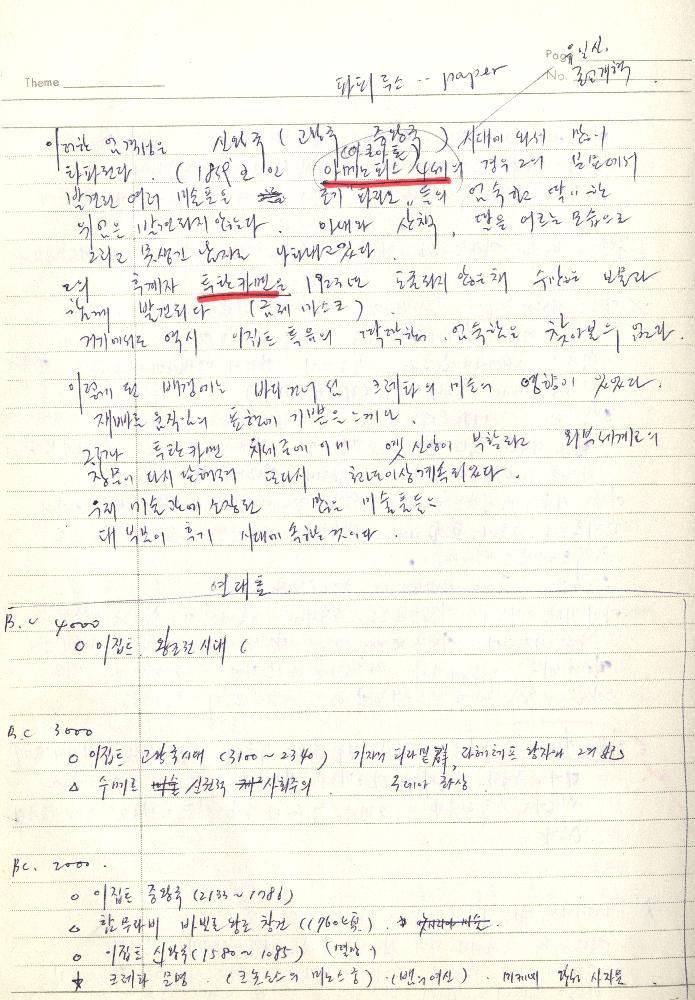 Theme
Page 유일신.
No. 종교개혁
파피루스 -- paper
이러한 엄격성은 신왕국 (고왕국 중왕국) 시대에 와서 많이
(아크아톤)
타파된다. (1839년 인 아메노피스 4세의 경우 그의 분묘에서
발견된 여러 미술품을 초기 파라오,, 들의 엄숙하고 딱딱한
위엄은 발견되지 않는다. 아내와 산책, 딸을 어르는 모습으로
그리고 못생긴 남자로 나타내고 있다.
그의 후계자 투탄카멘은 1923년 도굴되지 않은채 수많은 보물과
함께 발견되다 (금제 마스크)
거기에서도 역시 이집트 특유의 딱딱하고 엄숙함은 찾아볼수 없다.
이렇게 된 배경에는 바다건너 섬 크레타의 미술의 영향이 있었다.
재빠른 움직임의 표현에 기쁨을 느끼는.
그러나 투탄카멘 치세중에 이미 옛 신앙이 부활하고 외부세계로의
창문이 다시 닫혀져 또다시 천년이상 계속되었다.
우리 미술관에 소장된 많은 미술품들은
대부분이 후기 시대에 속하는 것이다.
연대표.
B.C 4000
○ 이집트. 왕조전시대 (
B.C 3000
○ 이집트 고왕국시대 (3100~2340) 기자의 피라밑群, 라헤테프 왕자와 그의 妃
△ 수메르 미술 신권적 사회주의. 구데아 좌상
BC. 2000.
○ 이집트 중왕국 (2133~1786)
△ 함무라비 바빌로 왕조 창건 (1760年).
○ 이집트 신왕국 (1580~1085)
★ 크레타 문명. (크놋소스의 미노스궁). (뱀의여신). 미케네 사자문